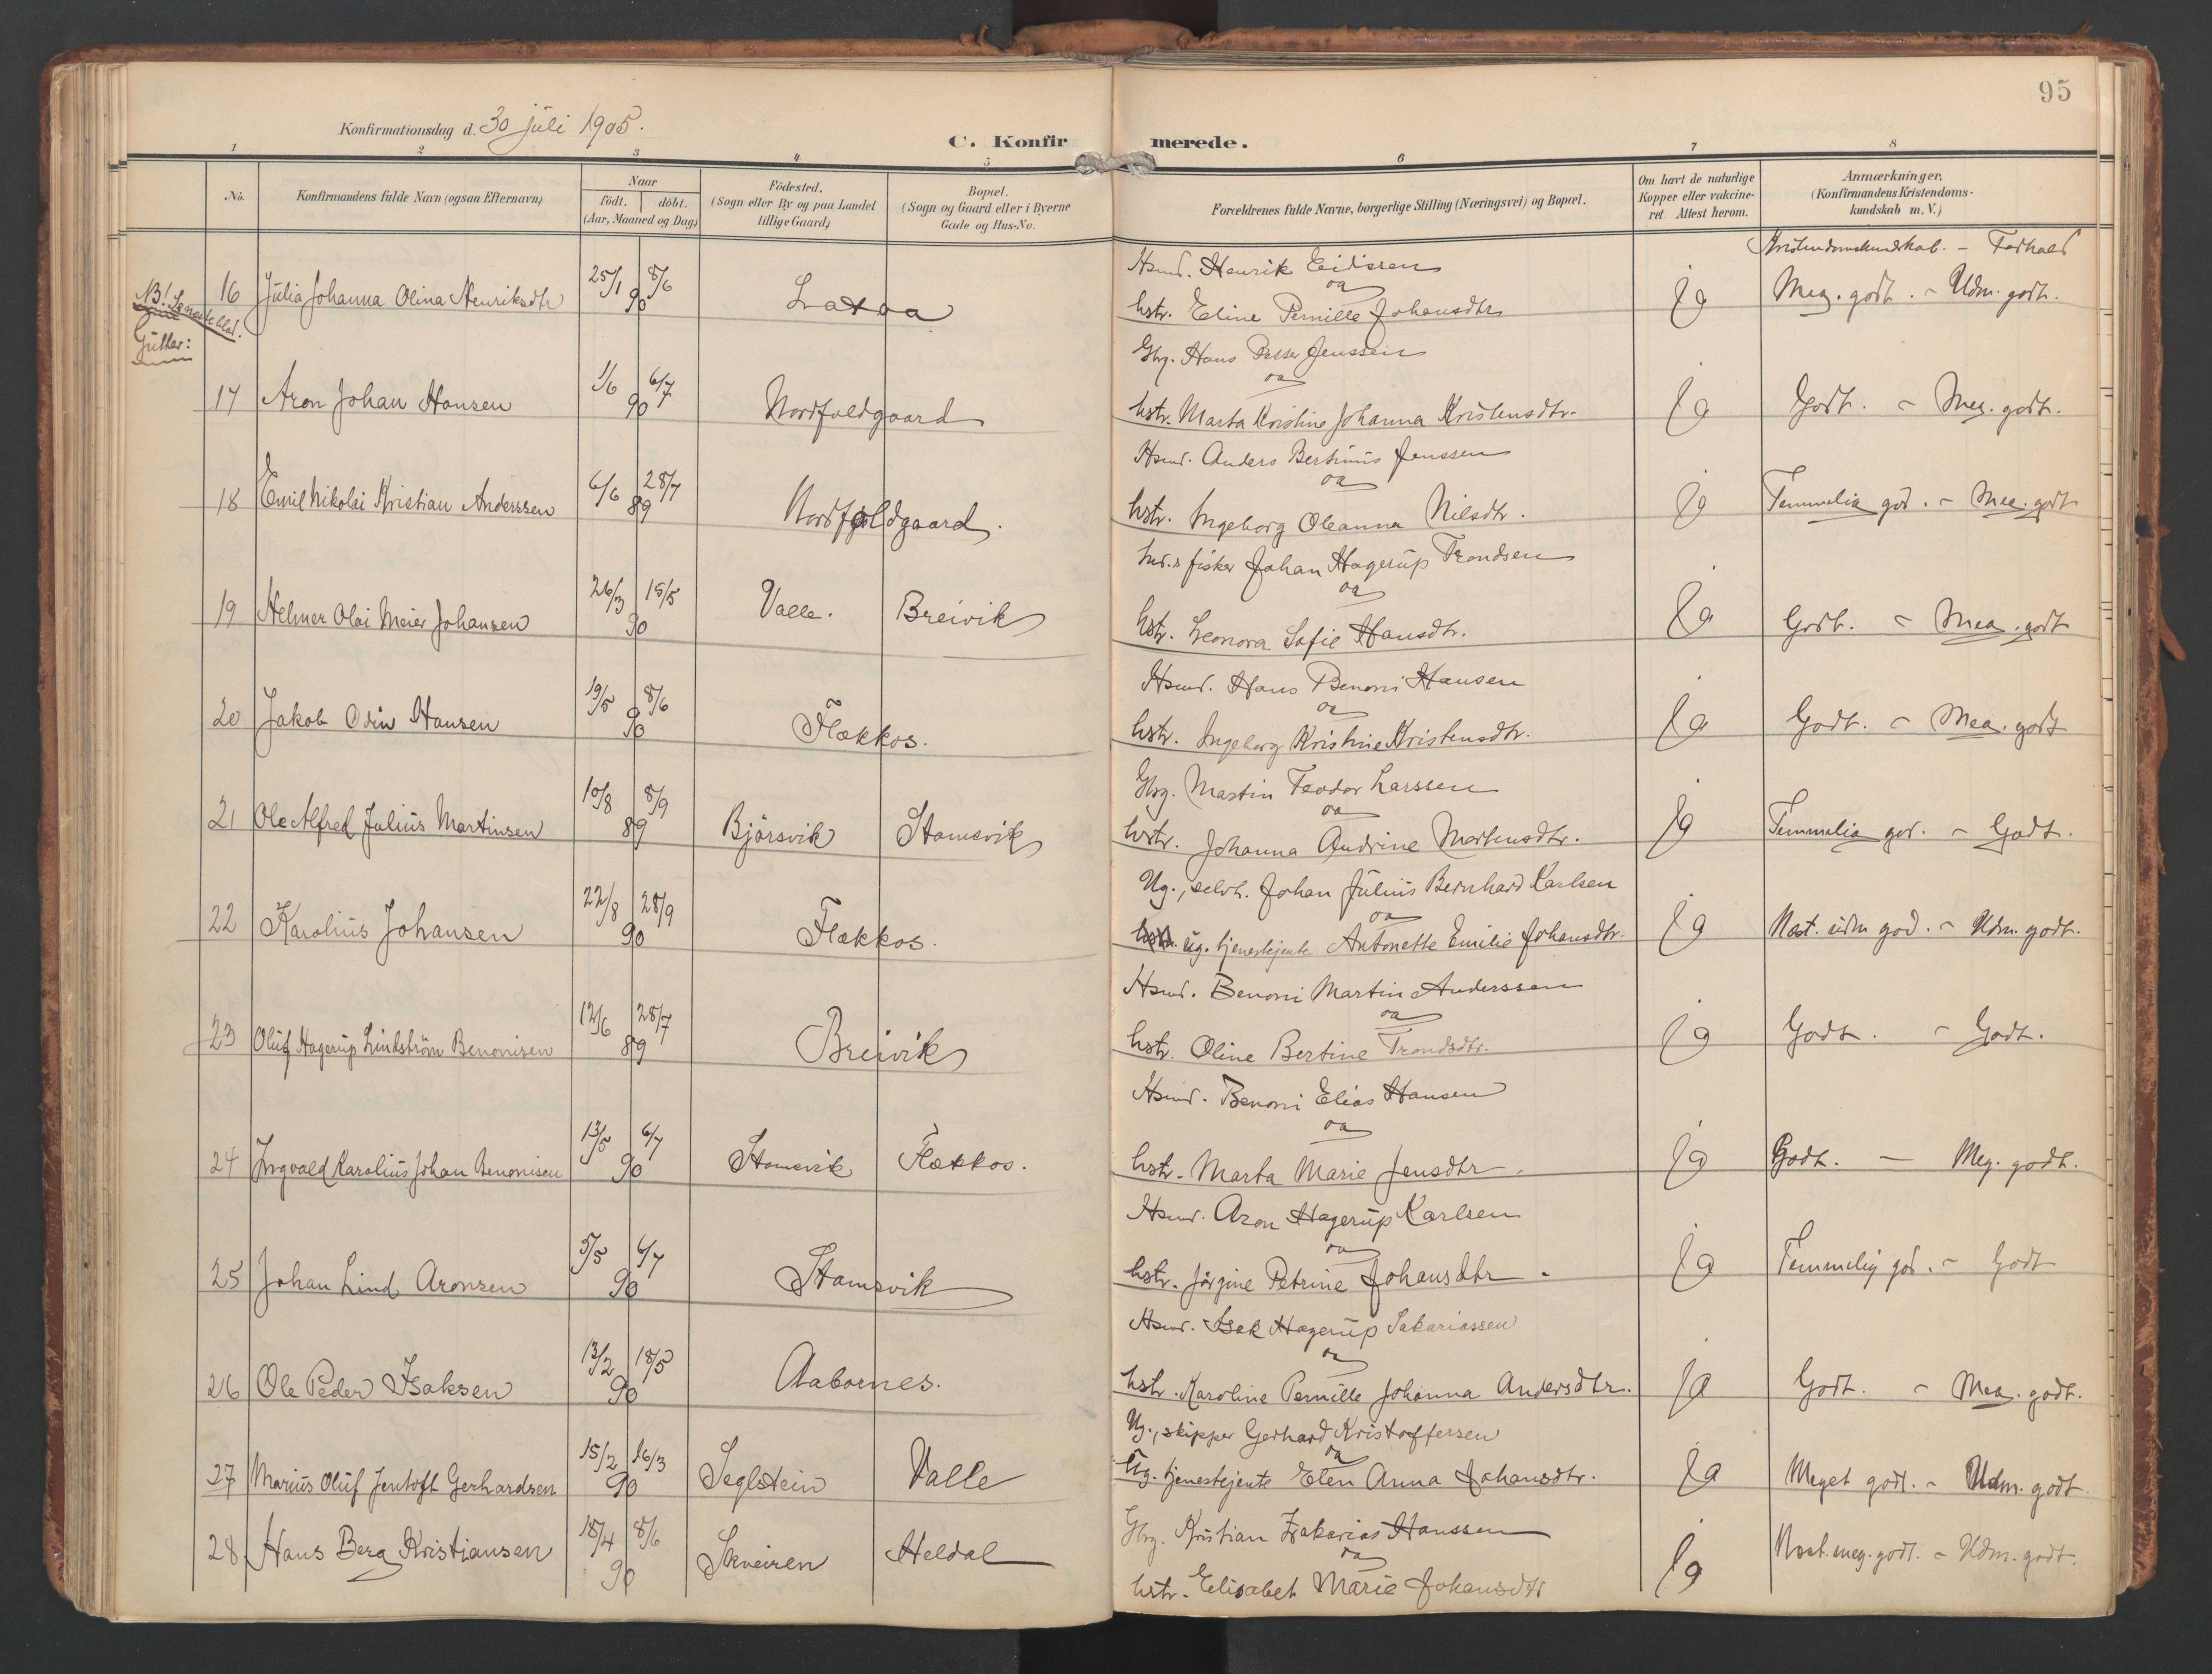 95
Konfirmationsdag d. 30 juli 1905.
C. Konfirmerede.
1 2 3 4 5 6 7 8
No.
Konfirmandens fulde Navn (ogsaa Efternavn)
Naar
födt. döbt.
(Aar, Maaned og Dag)
Födested.
(Sogn eller By og paa Landet
tillige Gaard)
Bopæl.
(Sogn og Gaard eller i Byerne
Gade og Hus-No.
Forældrenes fulde Navne, borgerlige Stilling (Næringsvei) og Bopæl.
Om havt de naturlige
Kopper eller vakcine-
ret. Attest herom.
Anmærkninger.
(Konfirmandens Kristendoms-
kundskab m. V.)
Kristendomskundskab. – Forhold
NB! Se næste blad.
Hsmd. Henrik Eidissen
oa
16 Julia Johanna Olina Henriksdtr 25/1 8/6 90 Laxaa hstr. Eline Pernille Johansdtr ja Meg. godt. – Udm. godt.
Gutter:
Gbrg. Hans Peder Jenssen
oa
17 Aron Johan Hansen 1/6 6/7 90 Nordfoldgaard hstr. Marta Kristine Johanna Kristensdtr. ja Godt. – Meg. godt.
Hsmd. Anders Bertinus Jenssen
oa
18 Emil Nikolai Kristian Anderssen 6/6 28/7 89 Nordfoldgaard. hstr. Ingeborg Oleanna Nilsdtr. ja Temmelig god. – Meg. godt
Ind.s fisker Johan Hagerup Trondsen
oa
19 Helmer Olai Meier Johansen 26/3 15/5 90 Valle. Breivik hstr. Leonora Sofie Hansdtr. ja Godt. – Meg. godt
Hsmd. Hans Benoni Hansen
oa
20 Jakob Odin Hansen 19/5 8/6 90 Flækkos. hstr. Ingeborg Kristine Kristensdtr. ja Godt. – Meg. godt
Gbrg. Martin Teodor Larssen
oa
21 Ole Alfred Julius Martinsen 10/8 8/9 89 Bjørsvik Stamsvik hstr. Johanna Andrine Mortensdtr. ja Temmelig god. – Godt.
Ug., selvh. Johan Julius Bernhard Karlsen
oa
22 Karolius Johansen 22/8 28/9 90 Flækkos. ug. tjenestejente Antonette Emilie Johansdtr. ja Næst. udm god. – Udm. godt.
Hsmd. Benoni Martin Anderssen
oa
23 Oluf Hagerup Lindström Benonisen 12/6 28/7 89 Breivik hstr. Oline Bertine Trondsdtr. ja Godt. – Godt.
Hsmd. Benoni Elias Hansen
oa
24 Ingvald Karolius Johan Benonisen 13/5 6/7 90 Stamsvik Flækkos. hstr. Marta Marie Jensdtr. ja Godt. — Meg. godt.
Hsmd. Aron Hagerup Karlsen
oa
25 Johan Lind Aronsen 5/5 6/7 90 Stamsvik hstr. Jørgine Petrine Johansdtr. ja Temmelig god. – Godt
Hsmd. Isak Hagerup Sakariassen
oa
26 Ole Peder Isaksen 13/2 18/5 90 Aabornes. hstr. Karoline Pernille Johanna Andersdtr. ja Godt. – Meg. godt.
Ug., skipper Gerhard Kristoffersen
oa
27 Marius Oluf Jentoft Gerhardsen 15/2 16/3 90 Seglstein Valle Ug. tjenestejente Elen Anna Johansdtr. ja Meget godt. – Udm. godt.
Gbrg. Kristian Zakarias Hanssen
oa
28 Hans Berg Kristiansen 18/4 8/6 90 Skveiren Heldal hstr. Elisabet Marie Johansdtr ja Næst. meg. godt. – Udm. godt.